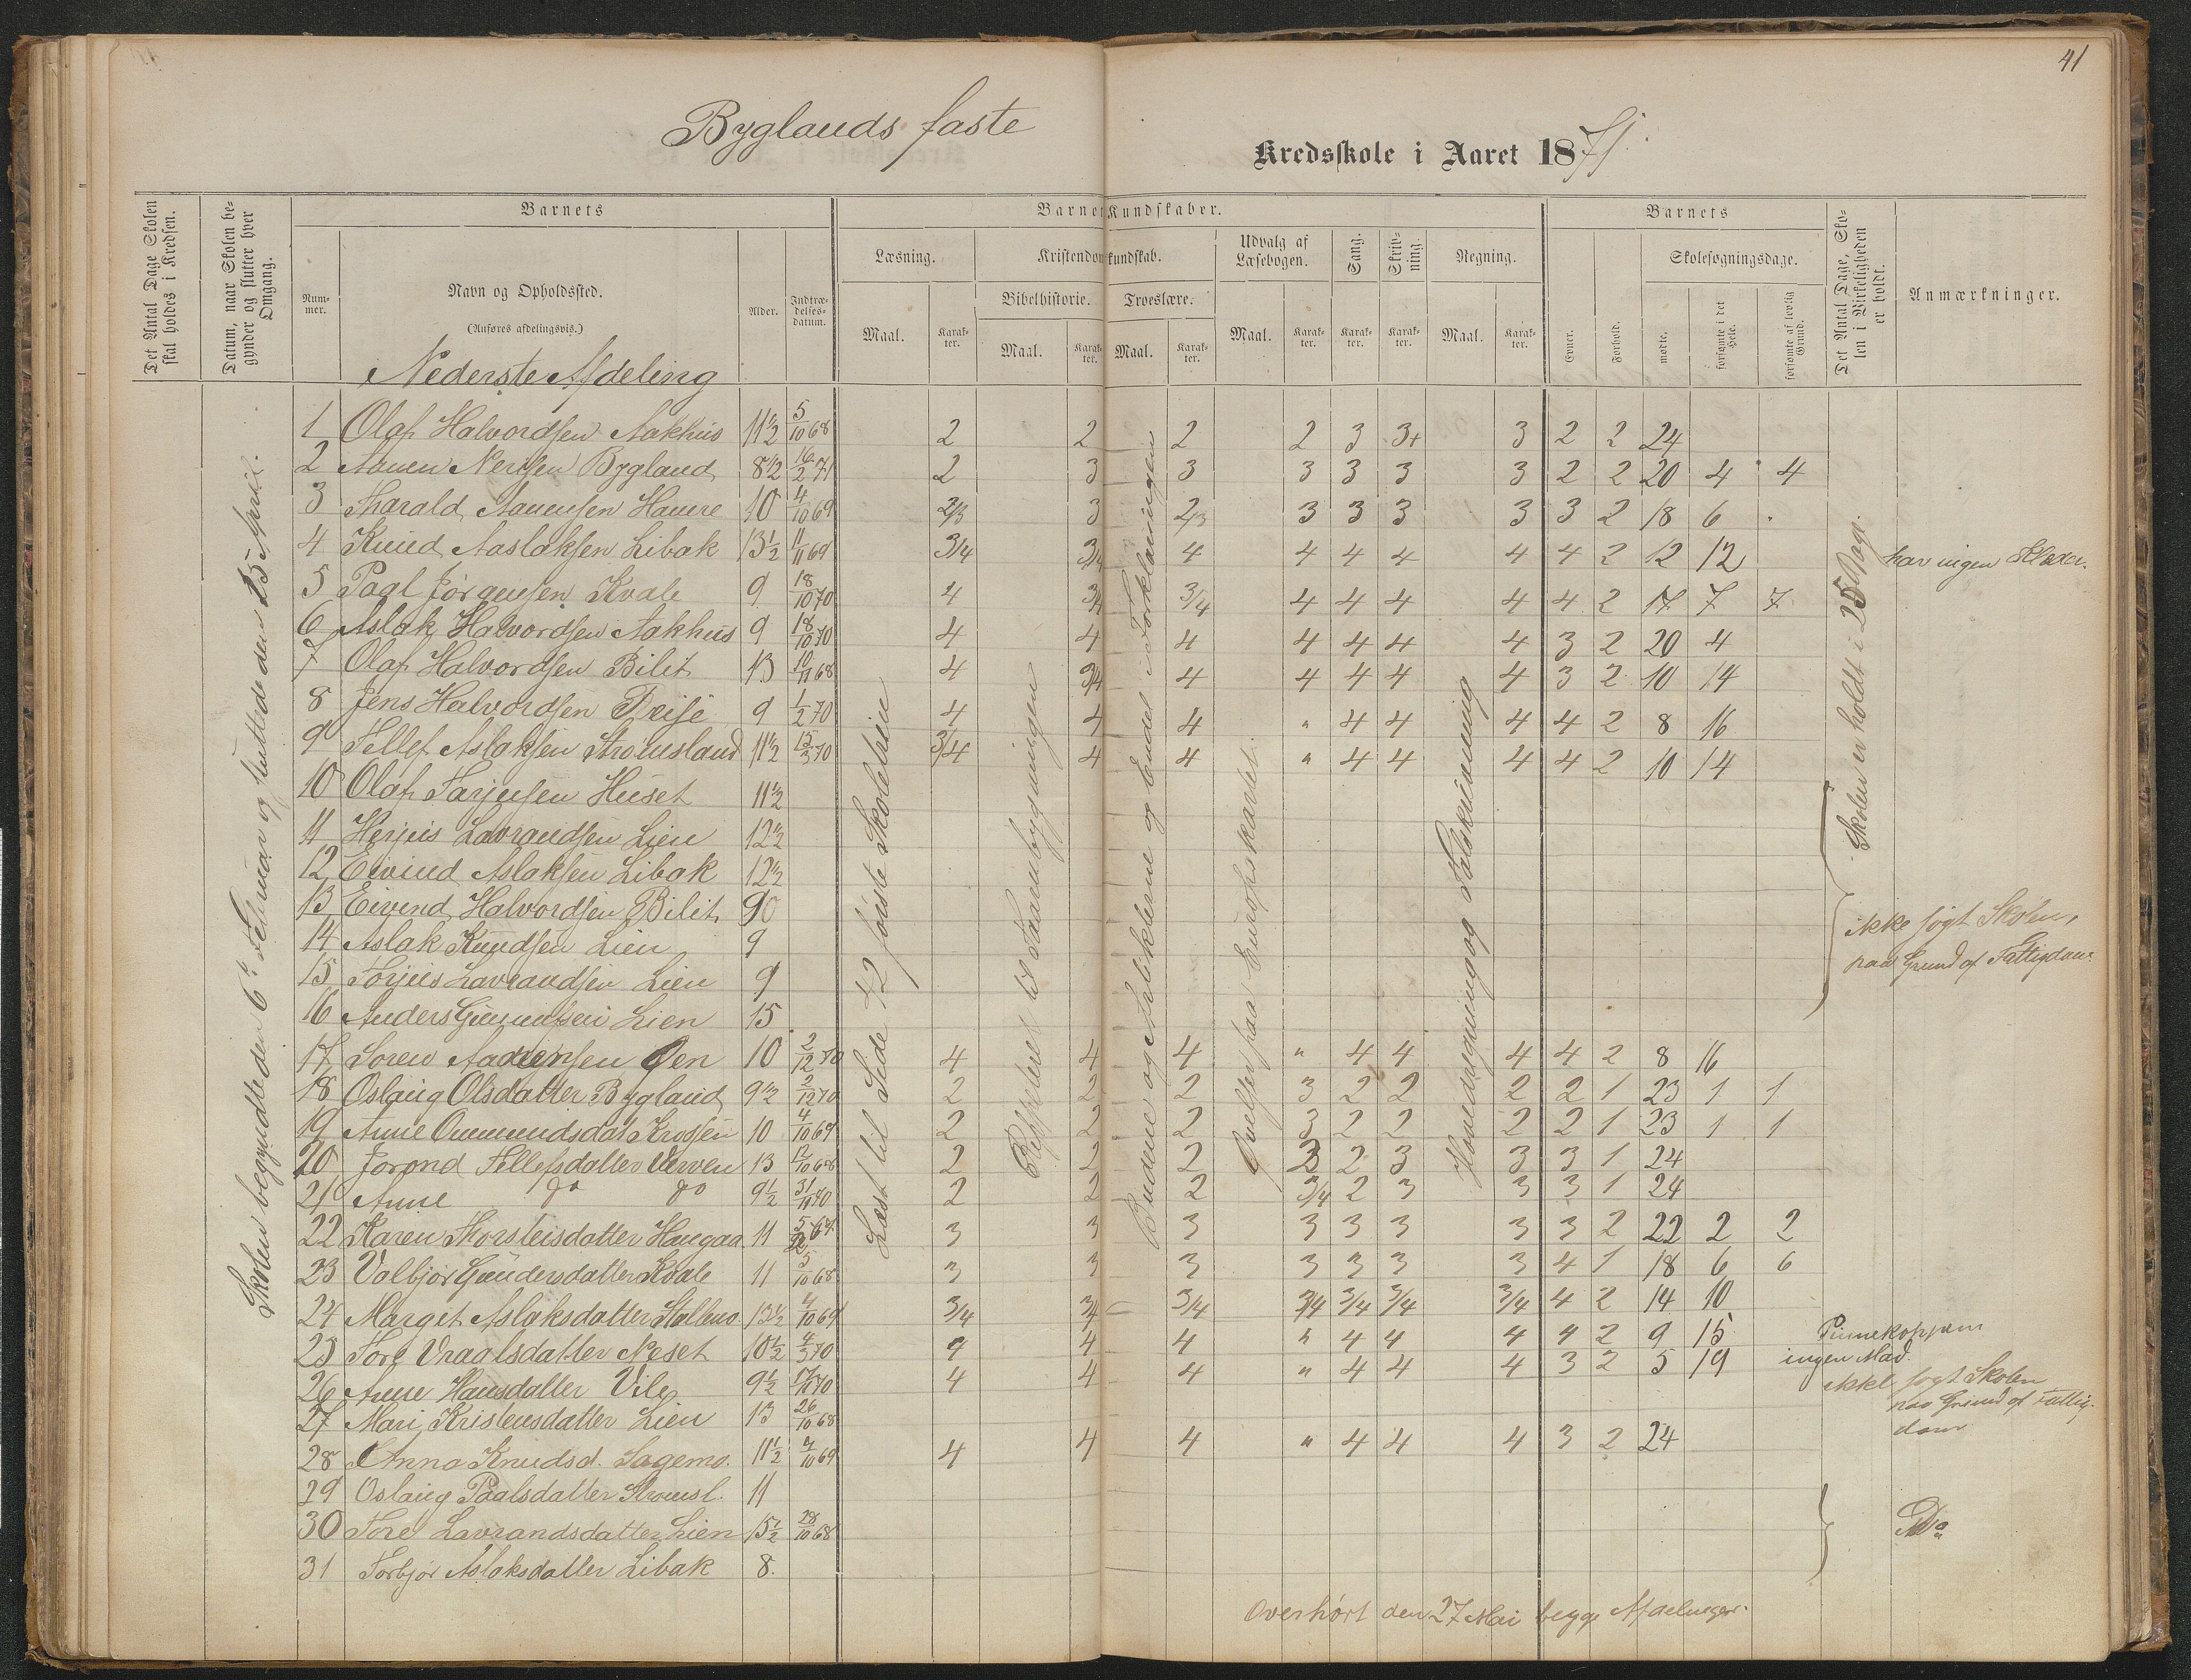 41
Byglands faste Kredsskole i Aaret 1871.
Det Antal Dage Skolen skal holdes i Kredsen.
Datum, naar Skolen begynder og slutter hver Omgang.
Barnets
Nummer.
Navn og Opholdssted.
(Anføres afdelingsvis.)
Alder.
Indtrædelsesdatum.
Barnets Kundskaber.
Læsning.
Maal.
Karakter.
Kristendomskundskab.
Bibelhistorie.
Maal.
Karakter.
Troeslære.
Maal.
Karakter.
Udvalg af Læsebogen.
Maal.
Karakter.
Sang.
Karakter.
Skrivning.
Karakter.
Regning.
Maal.
Karakter.
Barnets
Evner.
Forhold.
Skolesøgningsdage.
mødte.
forsømte i det Hele.
forsømte af lovlig Grund.
Det Antal Dage, Skolen i Virkeligheden er holdt.
Anmærkninger.
Nederste Afdeling
Skolen begyndte den 6te Februar og sluttede den 25 April.
Læst til Side 42 første Skoletrin
Repeteret til Taarnbygningen
Budene og Artiklerne og Endel i Forklaringen
Øvelser paa Europakartet.
Hovedregning og Talskrivning
Skolen er holdt i 25 Dage.
1 Olaf Halvordsen Aakhus 11 1/2 5/10 68 2 2 2 2 3 3+ 3 2 2 24
2 Aanen Nerisen Bygland 8 1/2 16/2 71 2 3 3 3 3 3 3 2 2 20 4 4
3 Tharald Aanensen Haure 10 4/10 69 2/3 3 2/3 3 3 3 3 3 2 18 6
4 Knud Aslaksen Libak 13 1/2 11/11 69 3/4 3/4 4 4 4 4 4 4 2 12 12 har ingen Klæder.
5 Paal Jørgensen Kvale 9 18/10 70 4 3/4 3/4 4 4 4 4 4 2 17 7 7
6 Aslak Halvordsen Aakhus 9 18/10 70 4 4 4 4 4 4 4 3 2 20 4
7 Olaf Halvordsen Bilit 13 10/11 68 4 3/4 4 4 4 4 4 3 2 10 14
8 Jens Halvordsen 9 1/2 70 4 4 4 " 4 4 4 4 2 8 16
9 Tellef Aslaksen Stromsland 11 1/2 15/3 70 3/4 4 4 " 4 4 4 4 2 10 14
10 Olaf Tarjeisen Huset 11 1/2
11 Herjus Lavrandsen Lien 12 1/2
12 Eivind Aslaksen Libak 12 1/2
13 Eivend Halvordsen Bilit 9
14 Aslak Knudsen Lien 9
ikke søgt Skolen,
paa Grund af Fattigdom.
15 Torjus Lavrandsen Lien 9
16 Anders Lien 15
17 Soren Aadnensen Øen 10 2/12 70 4 4 4 " 4 4 4 4 2 8 16
18 Oslaug Olsdatter Bygland 9 1/2 2/12 70 2 2 2 3 2 2 2 2 1 23 1 1
19 Anne Ommundsdat 10 4/10 69 2 2 2 3 2 2 2 2 1 23 1 1
20 Jorond Tellefsdatter Verven 13 12/10 68 2 2 2 3 2 3 3 3 1 24
21 Anne do do 9 1/2 31/11 70 2 2 2 3/4 2 3 3 3 1 24
22 Karen Thorsteisdatter 11 3 3 3 3 3 3 3 3 2 22 2 2
23 Valbjør Gundersdatter Kvale 11 5/10 68 3 3 3 3 3 3 3 4 1 18 6 6
24 Margit Aslaksdatter 13 1/2 4/10 69 3/4 3/4 3/4 3/4 3/4 3/4 3/4 4 2 14 10
25 Tore Vraalsdatter Neset 10 1/2 4/3 70 4 4 4 " 4 4 4 4 2 9 15
26 Anne Hansdatter 9 1/2 17/11 70 4 4 4 " 4 4 4 3 2 5 19 ingen Mad.
27 Mari Kristensdatter Lien 13 26/10 68 ikke søgt Skolen
paa Grund af Fattigdom
28 Anna Knudsd. Sagemo. 11 1/2 4/10 69 4 4 4 " 4 4 4 3 2 24
29 Oslaug Paalsdatter Stromsl. 11
30 Tore Lavrandsdatter Lien 15 1/2 28/10 68 Do
31 Torbjør Aslaksdatter Libak 8.
Overhørt den 27 Mai begge Afdelinger.